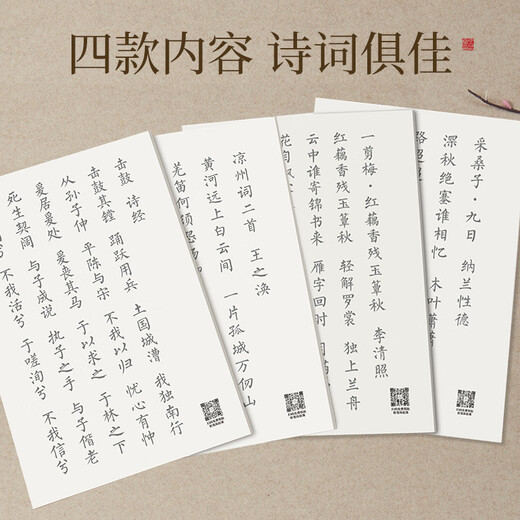 四款内容 诗词俱佳
击鼓 诗经
击鼓其镗 踊跃用兵 土国城漕 我独南行
从孙子仲 平陈与宋 不我以归 忧心有忡
爰居爰处 爰丧其马 于以求之 于林之下
死生契阔 与子成说 执子之手 与子偕老
不我活兮 于嗟洵兮 不我信兮
凉州词二首 王之涣
黄河远上白云间 一片孤城万仞山
羌笛何须怨杨
一剪梅·红藕香残玉簟秋 李清照
红藕香残玉簟秋 轻解罗裳 独上兰舟
云中谁寄锦书来 雁字回时
花自飘
采桑子·九日 纳兰性德
深秋绝塞谁相忆 木叶萧萧